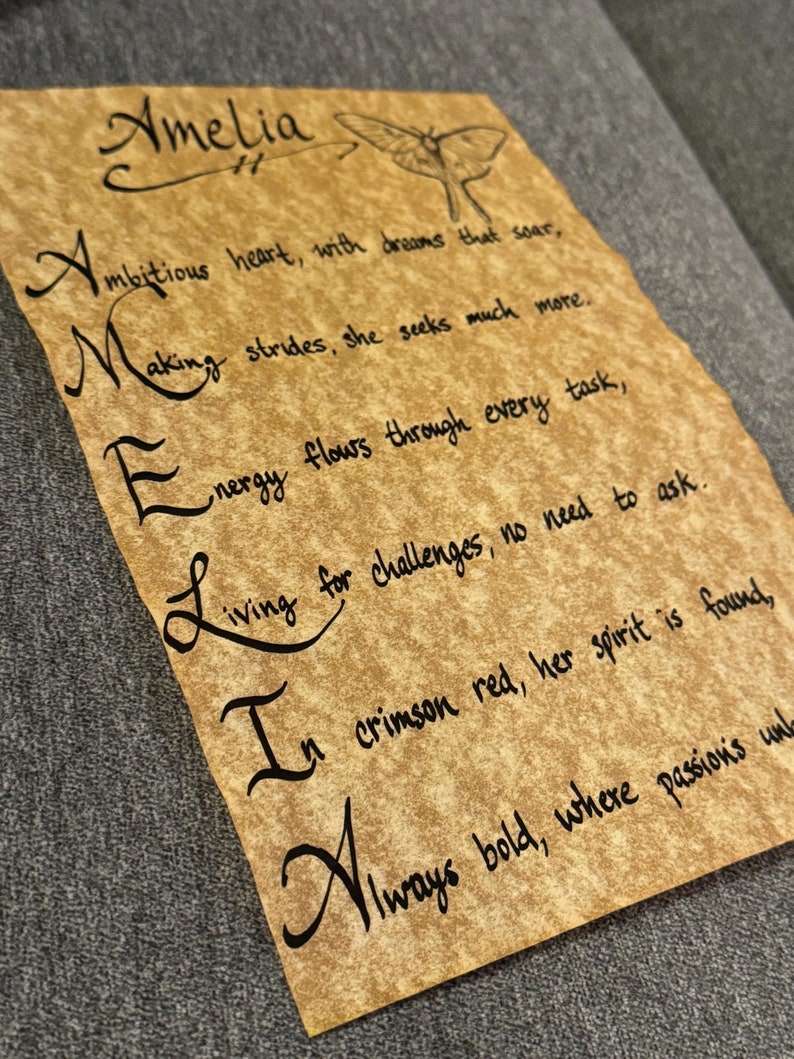 Amelia
Ambitious heart, with dreams that soar,
Making strides, she seeks much more.
Energy flows through every task,
Living for challenges, no need to ask.
In crimson red, her spirit is found,
Always bold, where passions